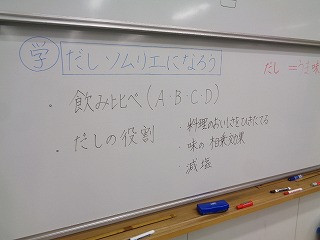 学 だしソムリエになろう
だし=うま味
・飲み比べ(A・B・C・D)
・だしの役割
・料理のおいしさをひきたてる
・味の相乗効果
減塩